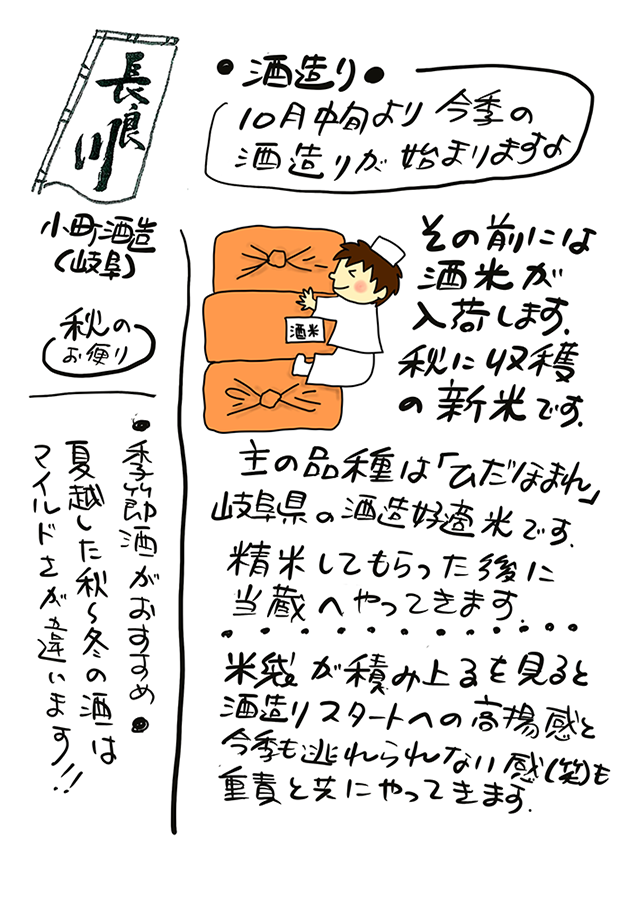 長良川
小町酒造
(岐阜)
秋の
お便り
●季節酒がおすすめ●
夏越した秋~冬の酒は
マイルドさが違います!!
●酒造り●
10月中旬より今季の
酒造りが始まりますよ
その前には
酒米が
入荷します.
秋に収穫
の新米です.
酒米
主の品種は「ひだほまれ」
岐阜県の酒造好適米です.
精米してもらった後に
当蔵へやってきます.
米袋が積み上るを見ると
酒造りスタートへの高揚感と
今季も逃れられない感(笑)も
重責と共にやってきます.